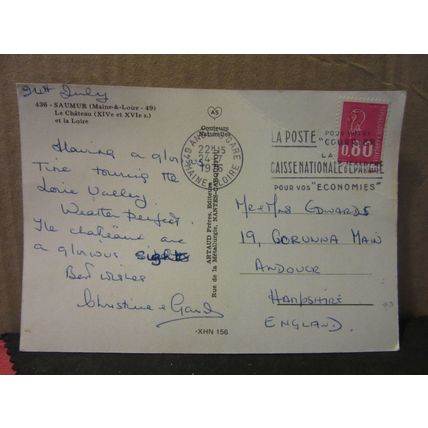 24th July
436 - SAUMUR (Maine-&-Loire - 49)
Le Château (XIVe et XVIe s.)
et la Loire
Having a glorious
Time touring the
Loire Valley.
Weather Perfect.
The chateaux are
a glorious sight
Best wishes
Christine &
AS
Couleurs
Naturelles
ARTAUD Frères, Éditeurs
Rue de la Métallurgie, NANTES
XHN 156
49 ANGERS GARE
22H15
24-7
1976
MAINE & LOIRE
LA POSTE POUR VOTRE
"COURRIER"
LA
CAISSE NATIONALE D'EPARGNE
POUR VOS "ECONOMIES"
0,80
Mr & Mrs EDWARDS
19, CORUNNA MAIN
ANDOVER
HAMPSHIRE
ENGLAND.